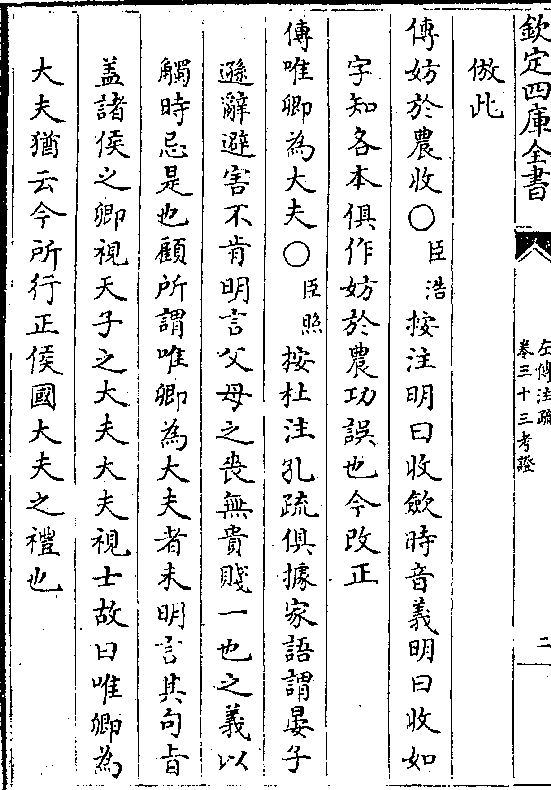 欽定四庫全書
左傳注疏
卷三十三考證
二
倣此
傳妨於農收○臣浩按注明曰收斂時音義明曰收如
字知各本俱作妨於農功誤也今改正
傳唯卿為大夫○臣照按杜注孔疏俱據家語謂晏子
遜辭避害不肯明言父母之喪無貴賤一也之義以
觸時忌是也顧所謂唯卿為大夫者未明言其句旨
盖諸侯之卿視天子之大夫大夫視士故曰唯卿為
大夫猶云今所行正侯國大夫之禮也